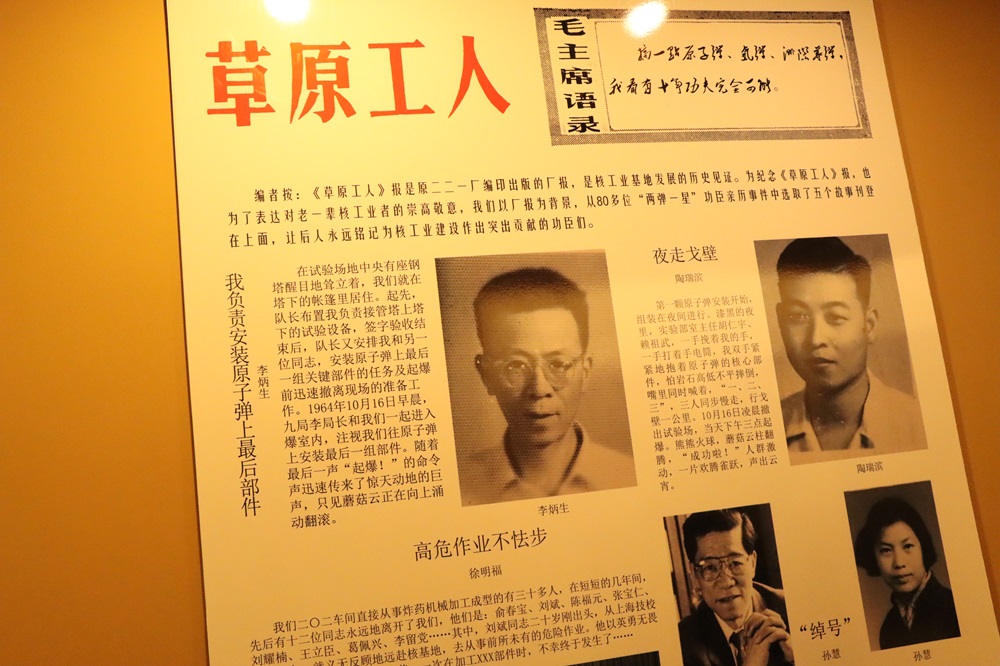 草原工人
毛主席语录
搞一点原子弹、氢弹、洲际导弹，
我看有十年功夫完全可能。
编者按：《草原工人》报是原二二一厂编印出版的厂报，是核工业基地发展的历史见证。为纪念《草原工人》报，也
为了表达对老一辈核工业者的崇高敬意，我们以厂报为背景，从80多位“两弹一星”功臣亲历事件中选取了五个故事刊登
在上面，让后人永远铭记为核工业建设作出突出贡献的功臣们。
我负责安装原子弹上最后部件
李炳生
在试验场地中央有座钢
塔醒目地耸立着，我们就在
塔下的帐篷里居住。起先，
队长布置我负责接管塔上塔
下的试验设备，签字验收结
束后，队长又安排我和另一
位同志，安装原子弹上最后
一组关键部件的任务及起爆
前迅速撤离现场的准备工
作。1964年10月16日早晨，
九局李局长和我们一起进入
爆室内，注视我们往原子弹
上安装最后一组部件。随着
最后一声“起爆！”的命令
声迅速传来了惊天动地的巨
声，只见蘑菇云正在向上涌
动翻滚。
李炳生
夜走戈壁
陶瑞滨
第一颗原子弹安装开始，
组装在夜间进行。漆黑的夜
里，实验部室主任胡仁宇、
赖祖武，一手挽着我的手，
一手打着手电筒，我双手紧
紧地抱着原子弹的核心部
件，怕岩石高低不平摔倒，
嘴里同时喊着，“一、二、
三”，三人同步慢走，行戈
壁一公里。10月16日凌晨撤
出试验场，当天下午三点起
爆。熊熊火球，蘑菇云柱翻
腾，“成功啦！”人群激
动，一片欢腾雀跃，声出云
宵。
陶瑞滨
高危作业不怯步
徐明福
我们二〇二车间直接从事炸药机械加工成型的有三十多人，在短短的几年间，
先后有十二位同志永远地离开了我们，他们是：俞春宝、刘斌、陈福元、张宝仁、
刘耀楠、王立臣、葛佩兴、李留党……其中，刘斌同志二十岁刚出头，从上海技校
义无反顾地远赴核基地，去从事前所未有的危险作业。他以英勇无畏
次在加工XXX部件时，不幸终于发生了……
“绰号”
孙慧
孙慧